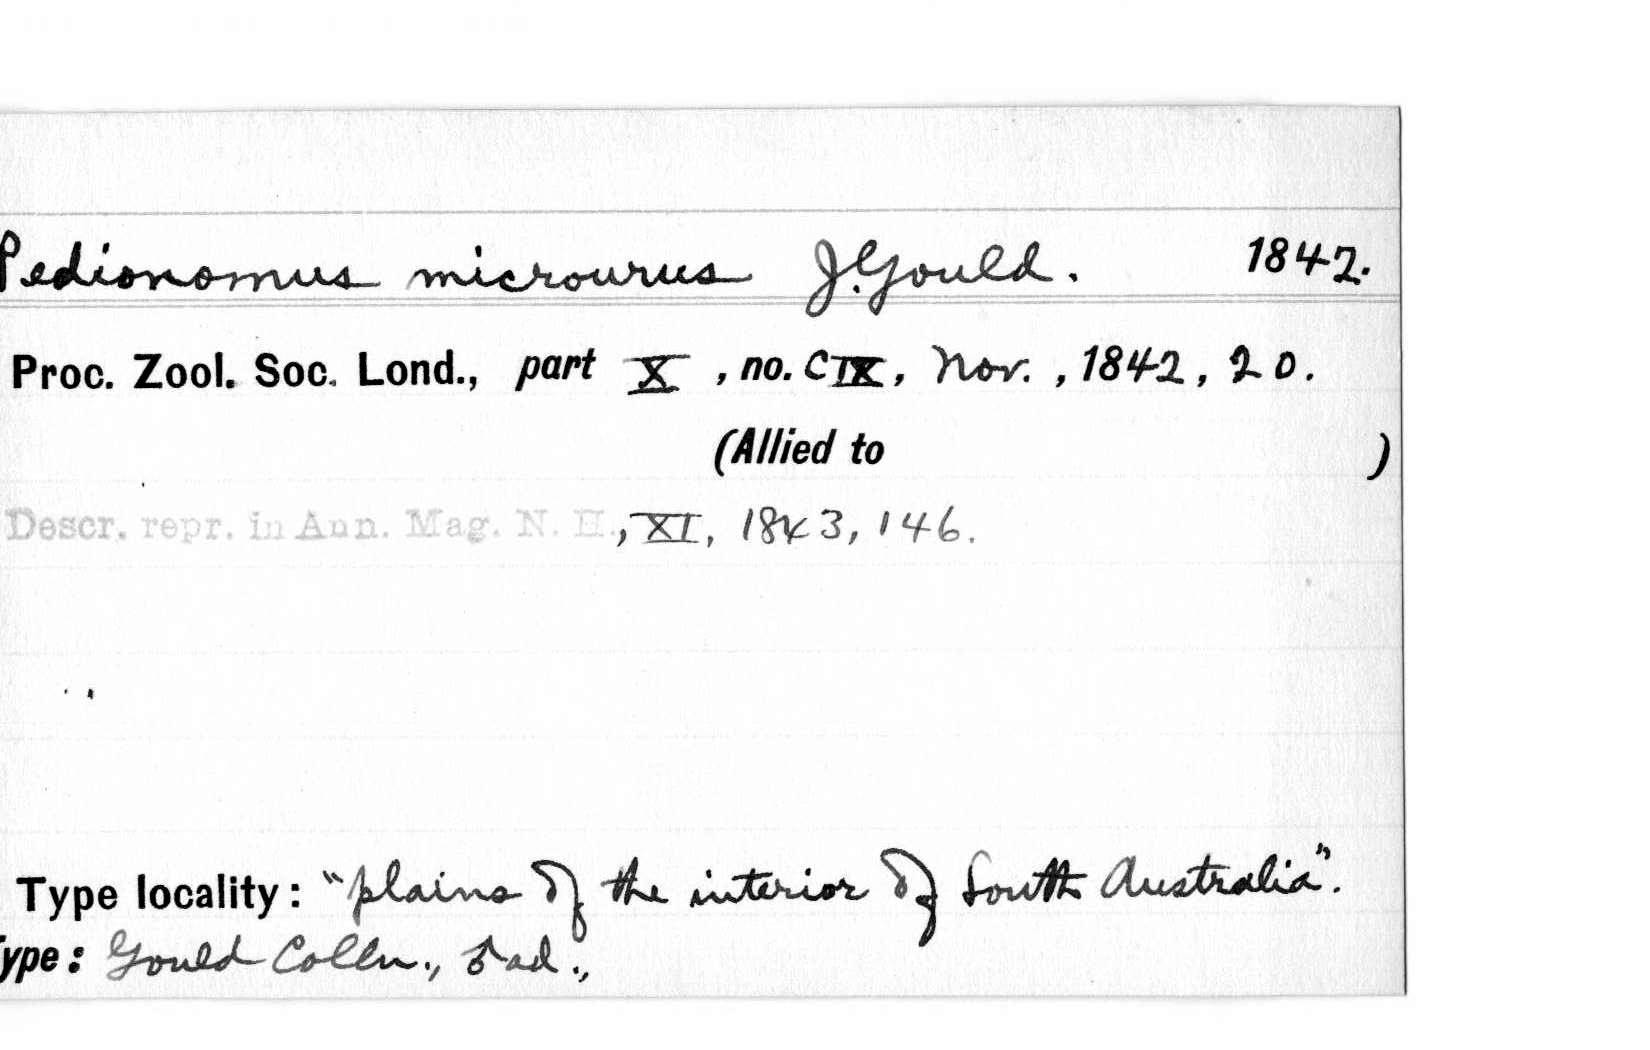 Pedionomus microurus J. Gould. 1842.
Proc. Zool. Soc. Lond., part X, no. CIX, Nov., 1842, 20.
(Allied to )
Descr. repr. in Ann. Mag. N. H., XI, 1843, 146.
Type locality: "plains of the interior of South Australia".
ype: Gould Colln., ad.,